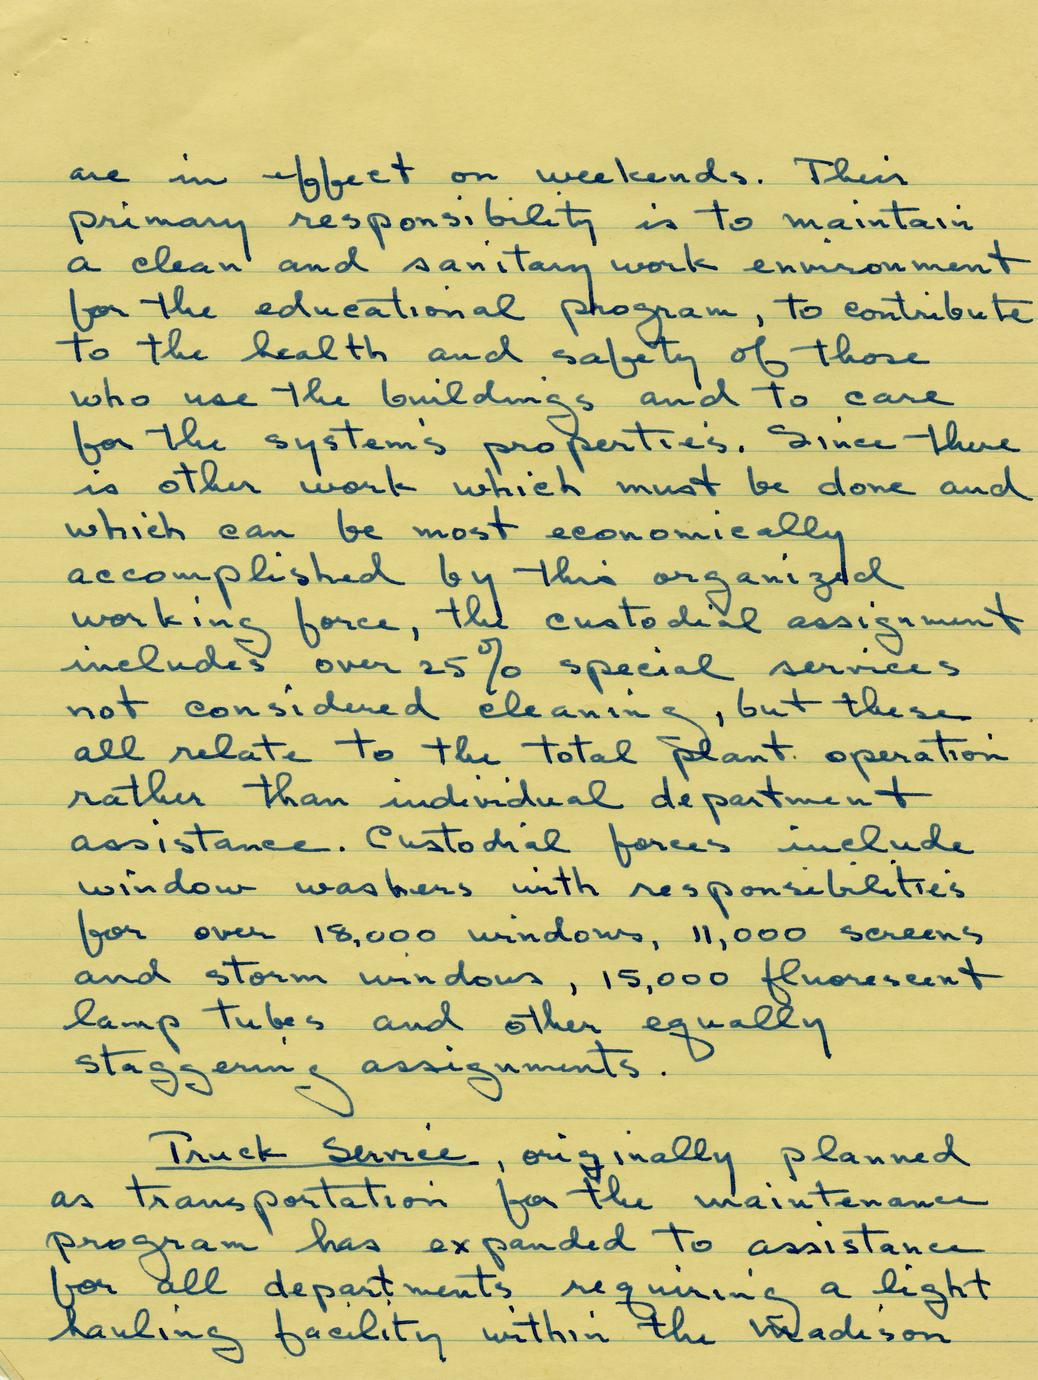 are in effect on weekends. Their
primary responsibility is to maintain
a clean and sanitary work environment
for the educational program, to contribute
to the health and safety of those
who use the buildings and to care
for the system's properties. Since there
is other work which must be done and
which can be most economically
accomplished by this organized
working force, the custodial assignment
includes over 25% special services
not considered cleaning, but these
all relate to the total plant operation
rather than individual department
assistance. Custodial forces include
window washers with responsibilities
for over 18,000 windows, 11,000 screens
and storm windows, 15,000 fluorescent
lamp tubes and other equally
staggering assignments.
Truck Service, originally planned
as transportation for the maintenance
program has expanded to assistance
for all departments requiring a light
hauling facility within the Madison